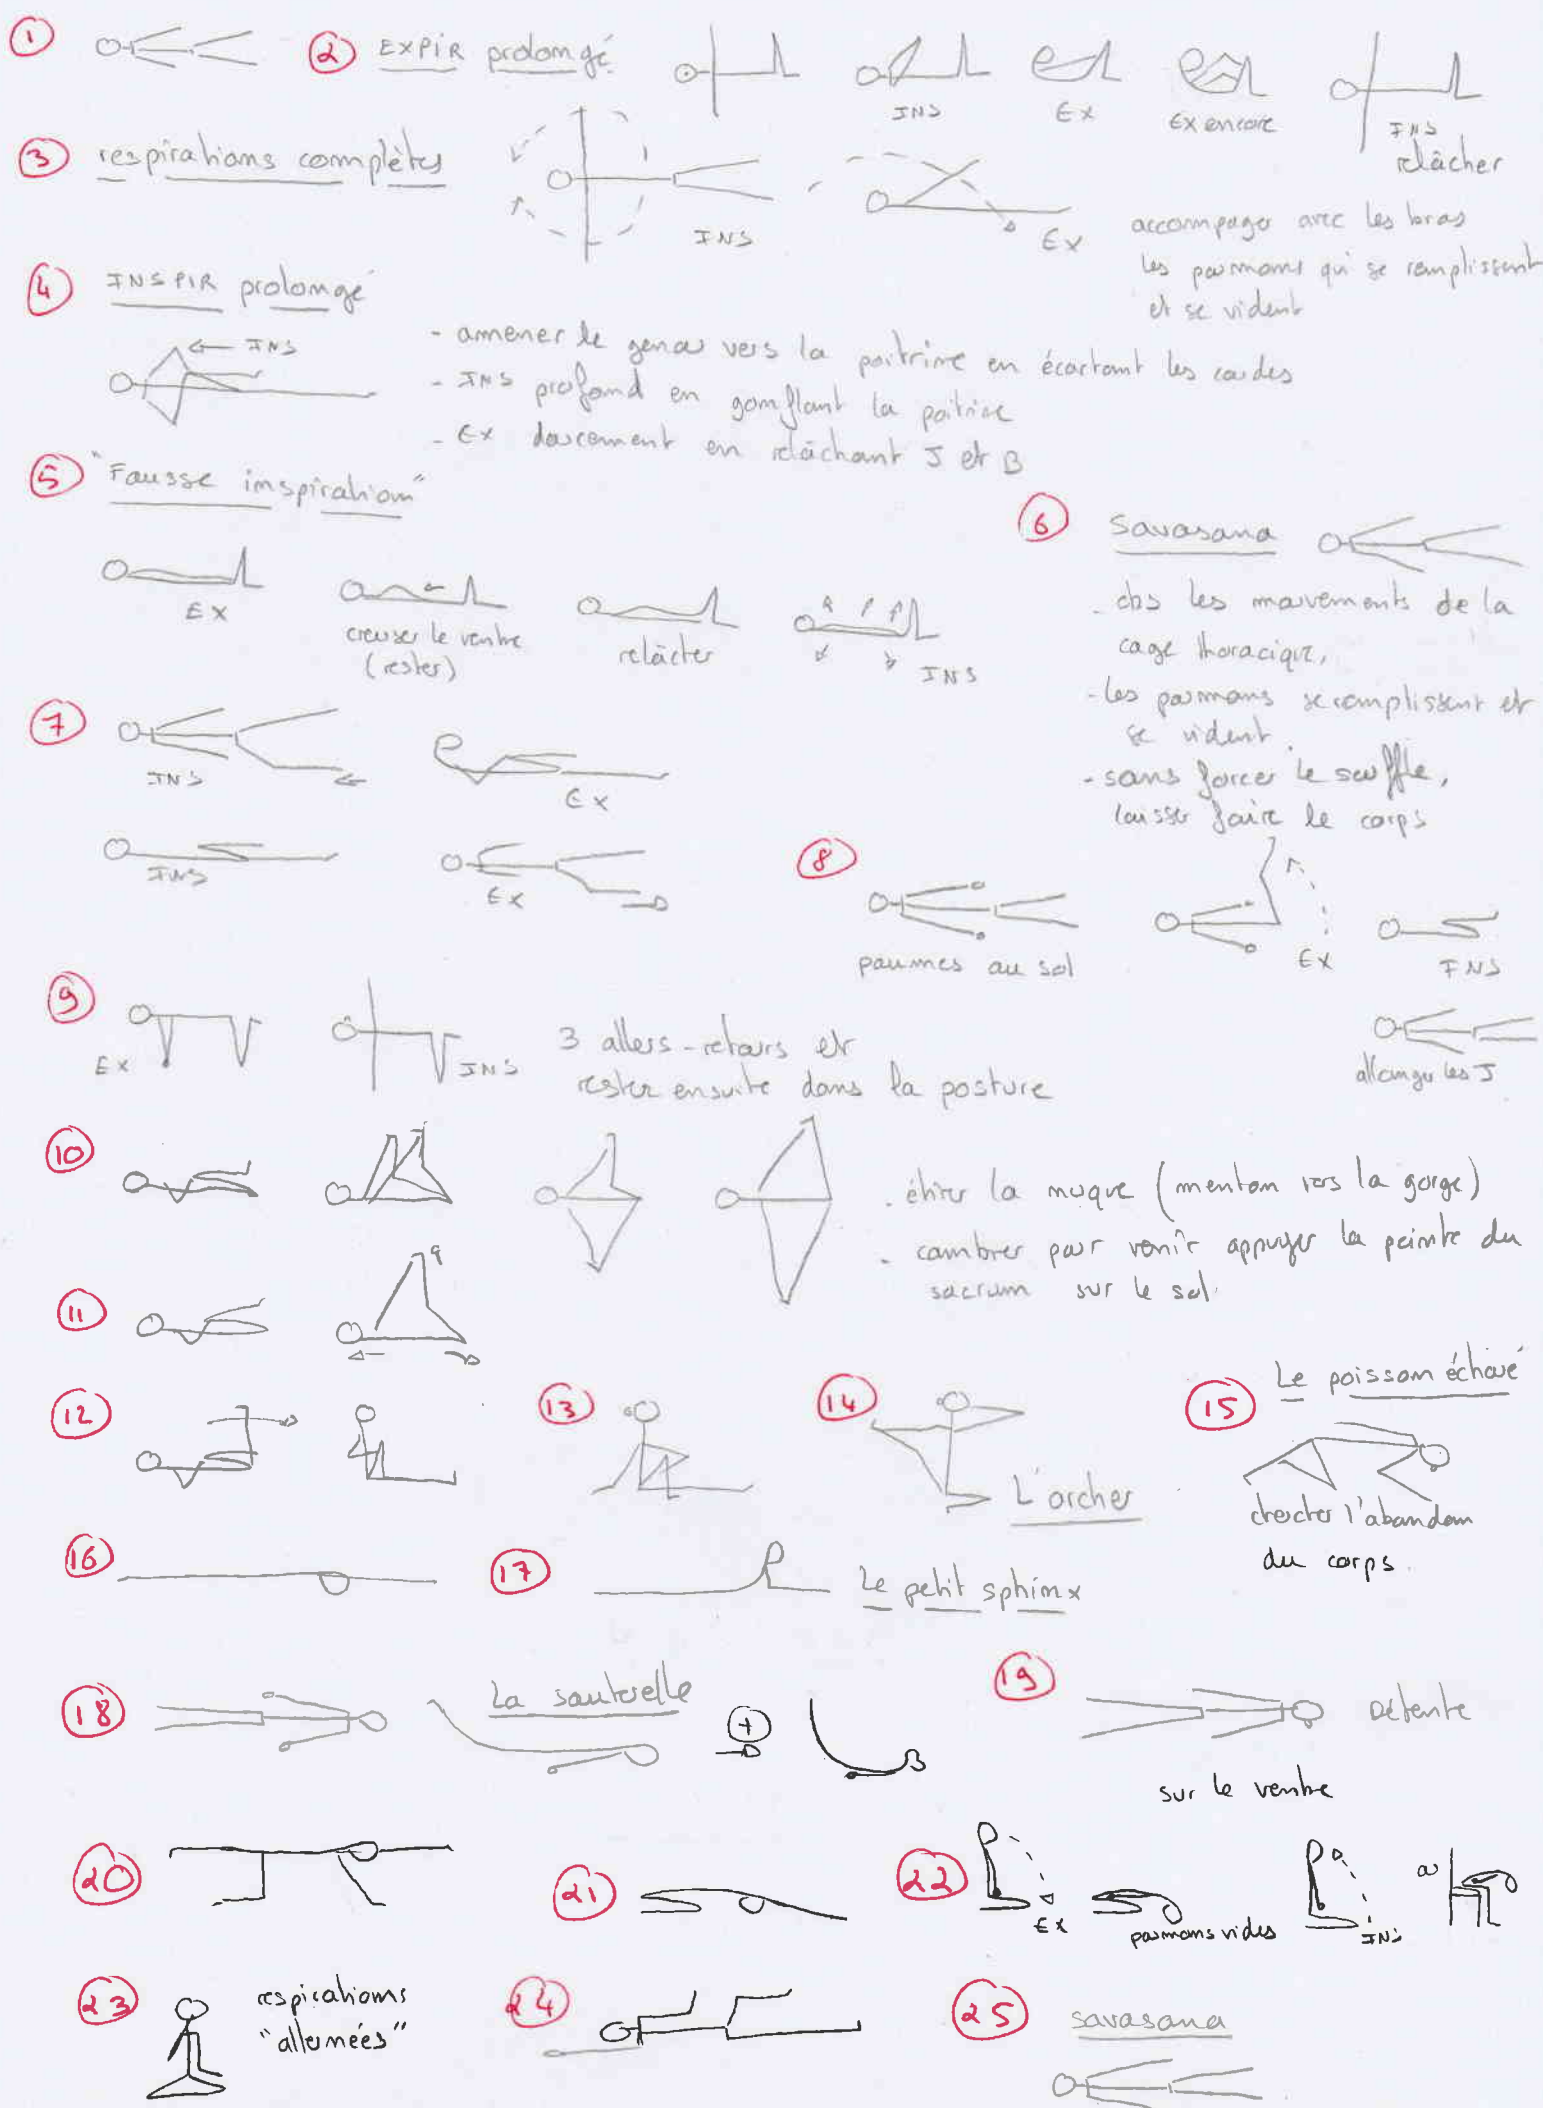 1
2 EXPIR prolongé
INS
EX
EX encore
INS
relâcher
3 respirations complètes
INS
EX
accompager avec les bras
les poumons qui se remplissent
et se vident
4 INSPIR prolongé
INS
- amener le genou vers la poitrine en écartant les coudes
- INS profond en gonflant la poitrine
- EX doucement en relâchant J et B
5 "Fausse inspiration"
EX
creuser le ventre
(rester)
relâcher
INS
6 Savasana
- obs les mouvements de la
cage thoracique,
- les poumons se remplissent et
se vident.
- sans forcer le souffle,
laisser faire le corps
7
INS
EX
INS
EX
8
paumes au sol
EX
INS
allonger les J
9
EX
INS
3 allers-retours et
rester ensuite dans la posture
10
- étirer la nuque (menton vers la gorge)
- cambrer pour venir appuyer la pointe du
sacrum sur le sol.
11
12
13
14
L'archer
15 Le poisson échoué
chercher l'abandon
du corps.
16
17
Le petit sphinx
18
La sauterelle
+
19
Détente
sur le ventre
20
21
22
EX
poumons vides
INS
ou
23
respirations
"alternées"
24
25
savasana